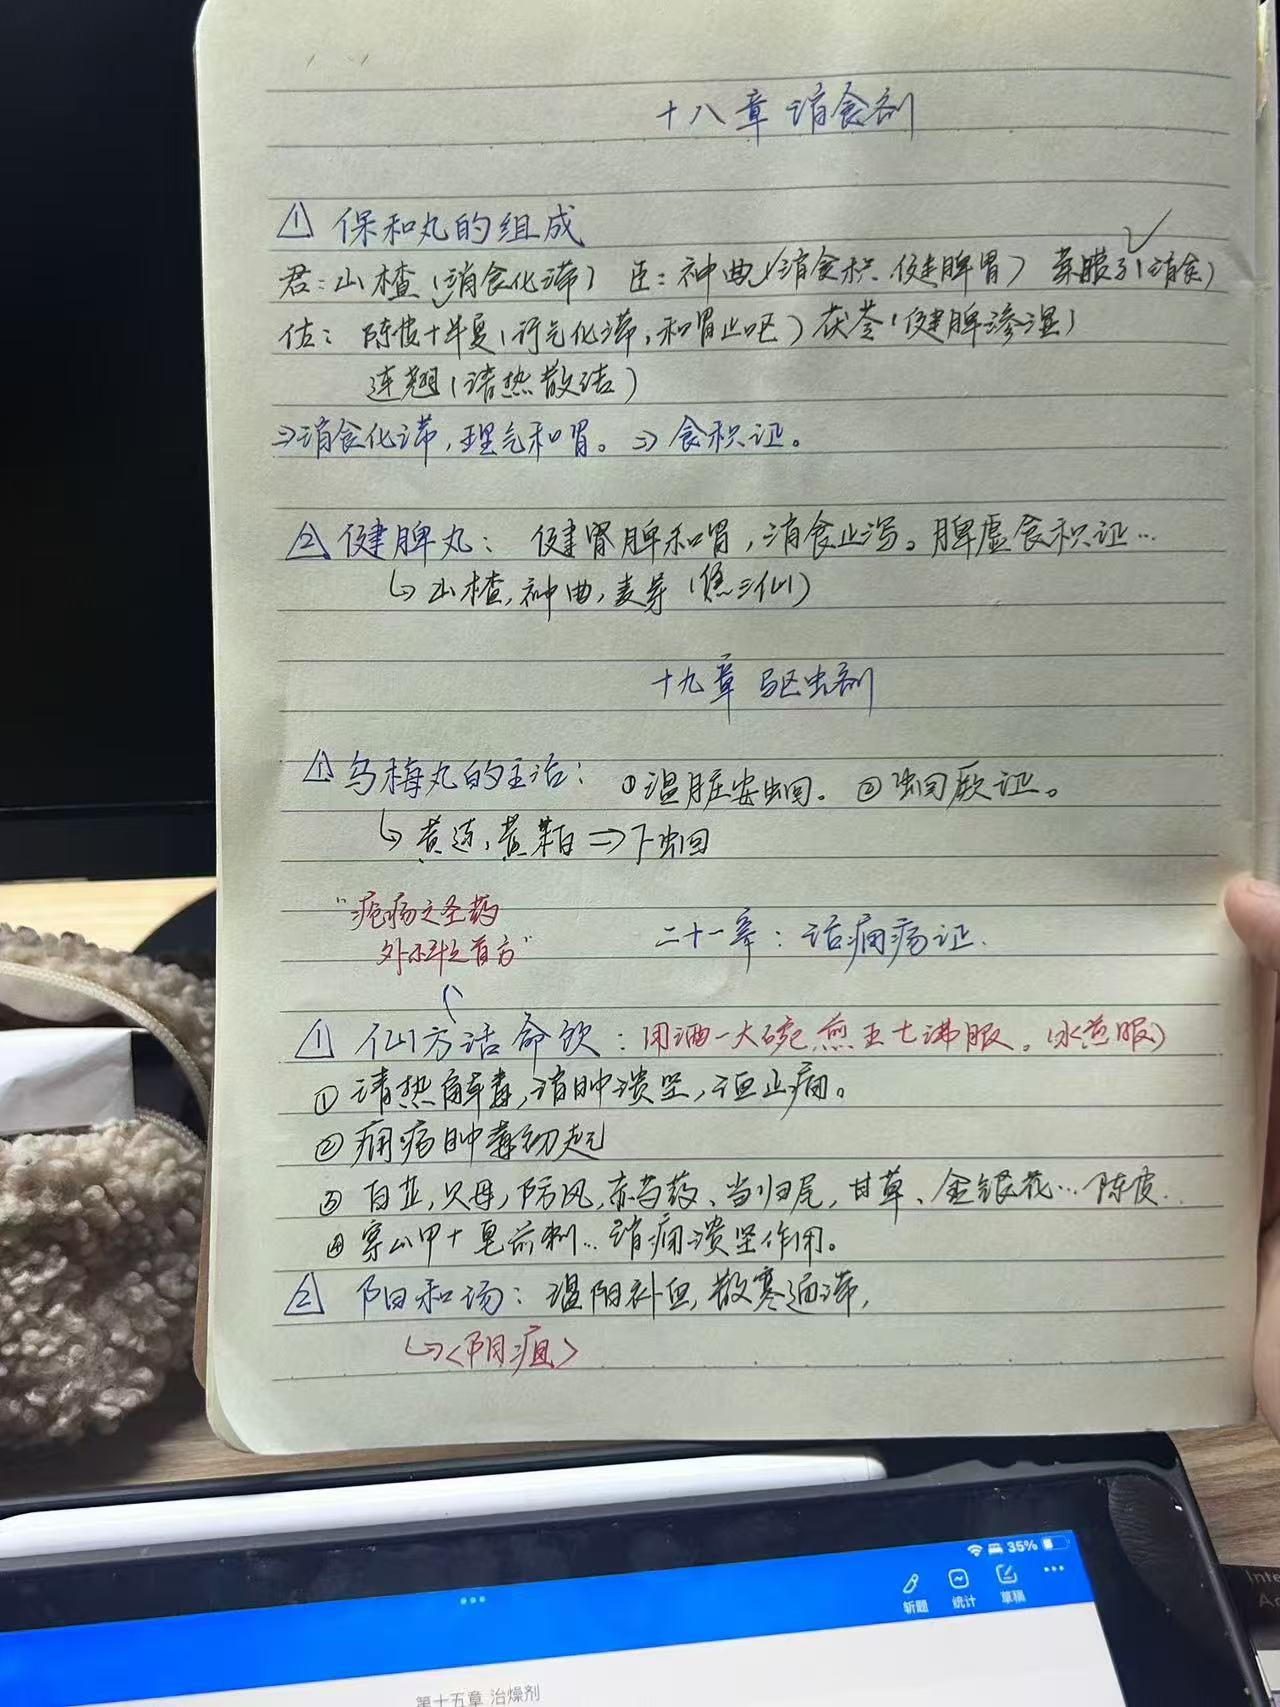 十八章 消食剂
① 保和丸的组成
君：山楂（消食化滞） 臣：神曲（消食积，健脾胃） 莱菔子（消食）
佐：陈皮+半夏（行气化滞，和胃止呕）茯苓（健脾渗湿）
连翘（清热散结）
⇒消食化滞，理气和胃。⇒ 食积证。
② 健脾丸： 健脾和胃，消食止泻。脾虚食积证…
↳ 山楂，神曲，麦芽（焦三仙）
十九章 驱虫剂
① 乌梅丸的主治： ①温脏安蛔。 ②蛔厥证。
↳ 黄连，黄柏 ⇒下蛔
“疮疡之圣药
外科之首方”
二十一章：治痈疡证.
① 仙方活命饮：用酒一大碗，煎五七沸服。（水煎服）
① 清热解毒，消肿溃坚，活血止痛。
② 痈疡肿毒初起
③ 白芷，贝母，防风，赤芍药、当归尾，甘草、金银花…陈皮..
④ 穿山甲+皂角刺…消痈溃坚作用。
② 阳和汤：温阳补血，散寒通滞，
↳<阴疽>
35%
斩题 统计 草稿
Inte
第十五章 治燥剂